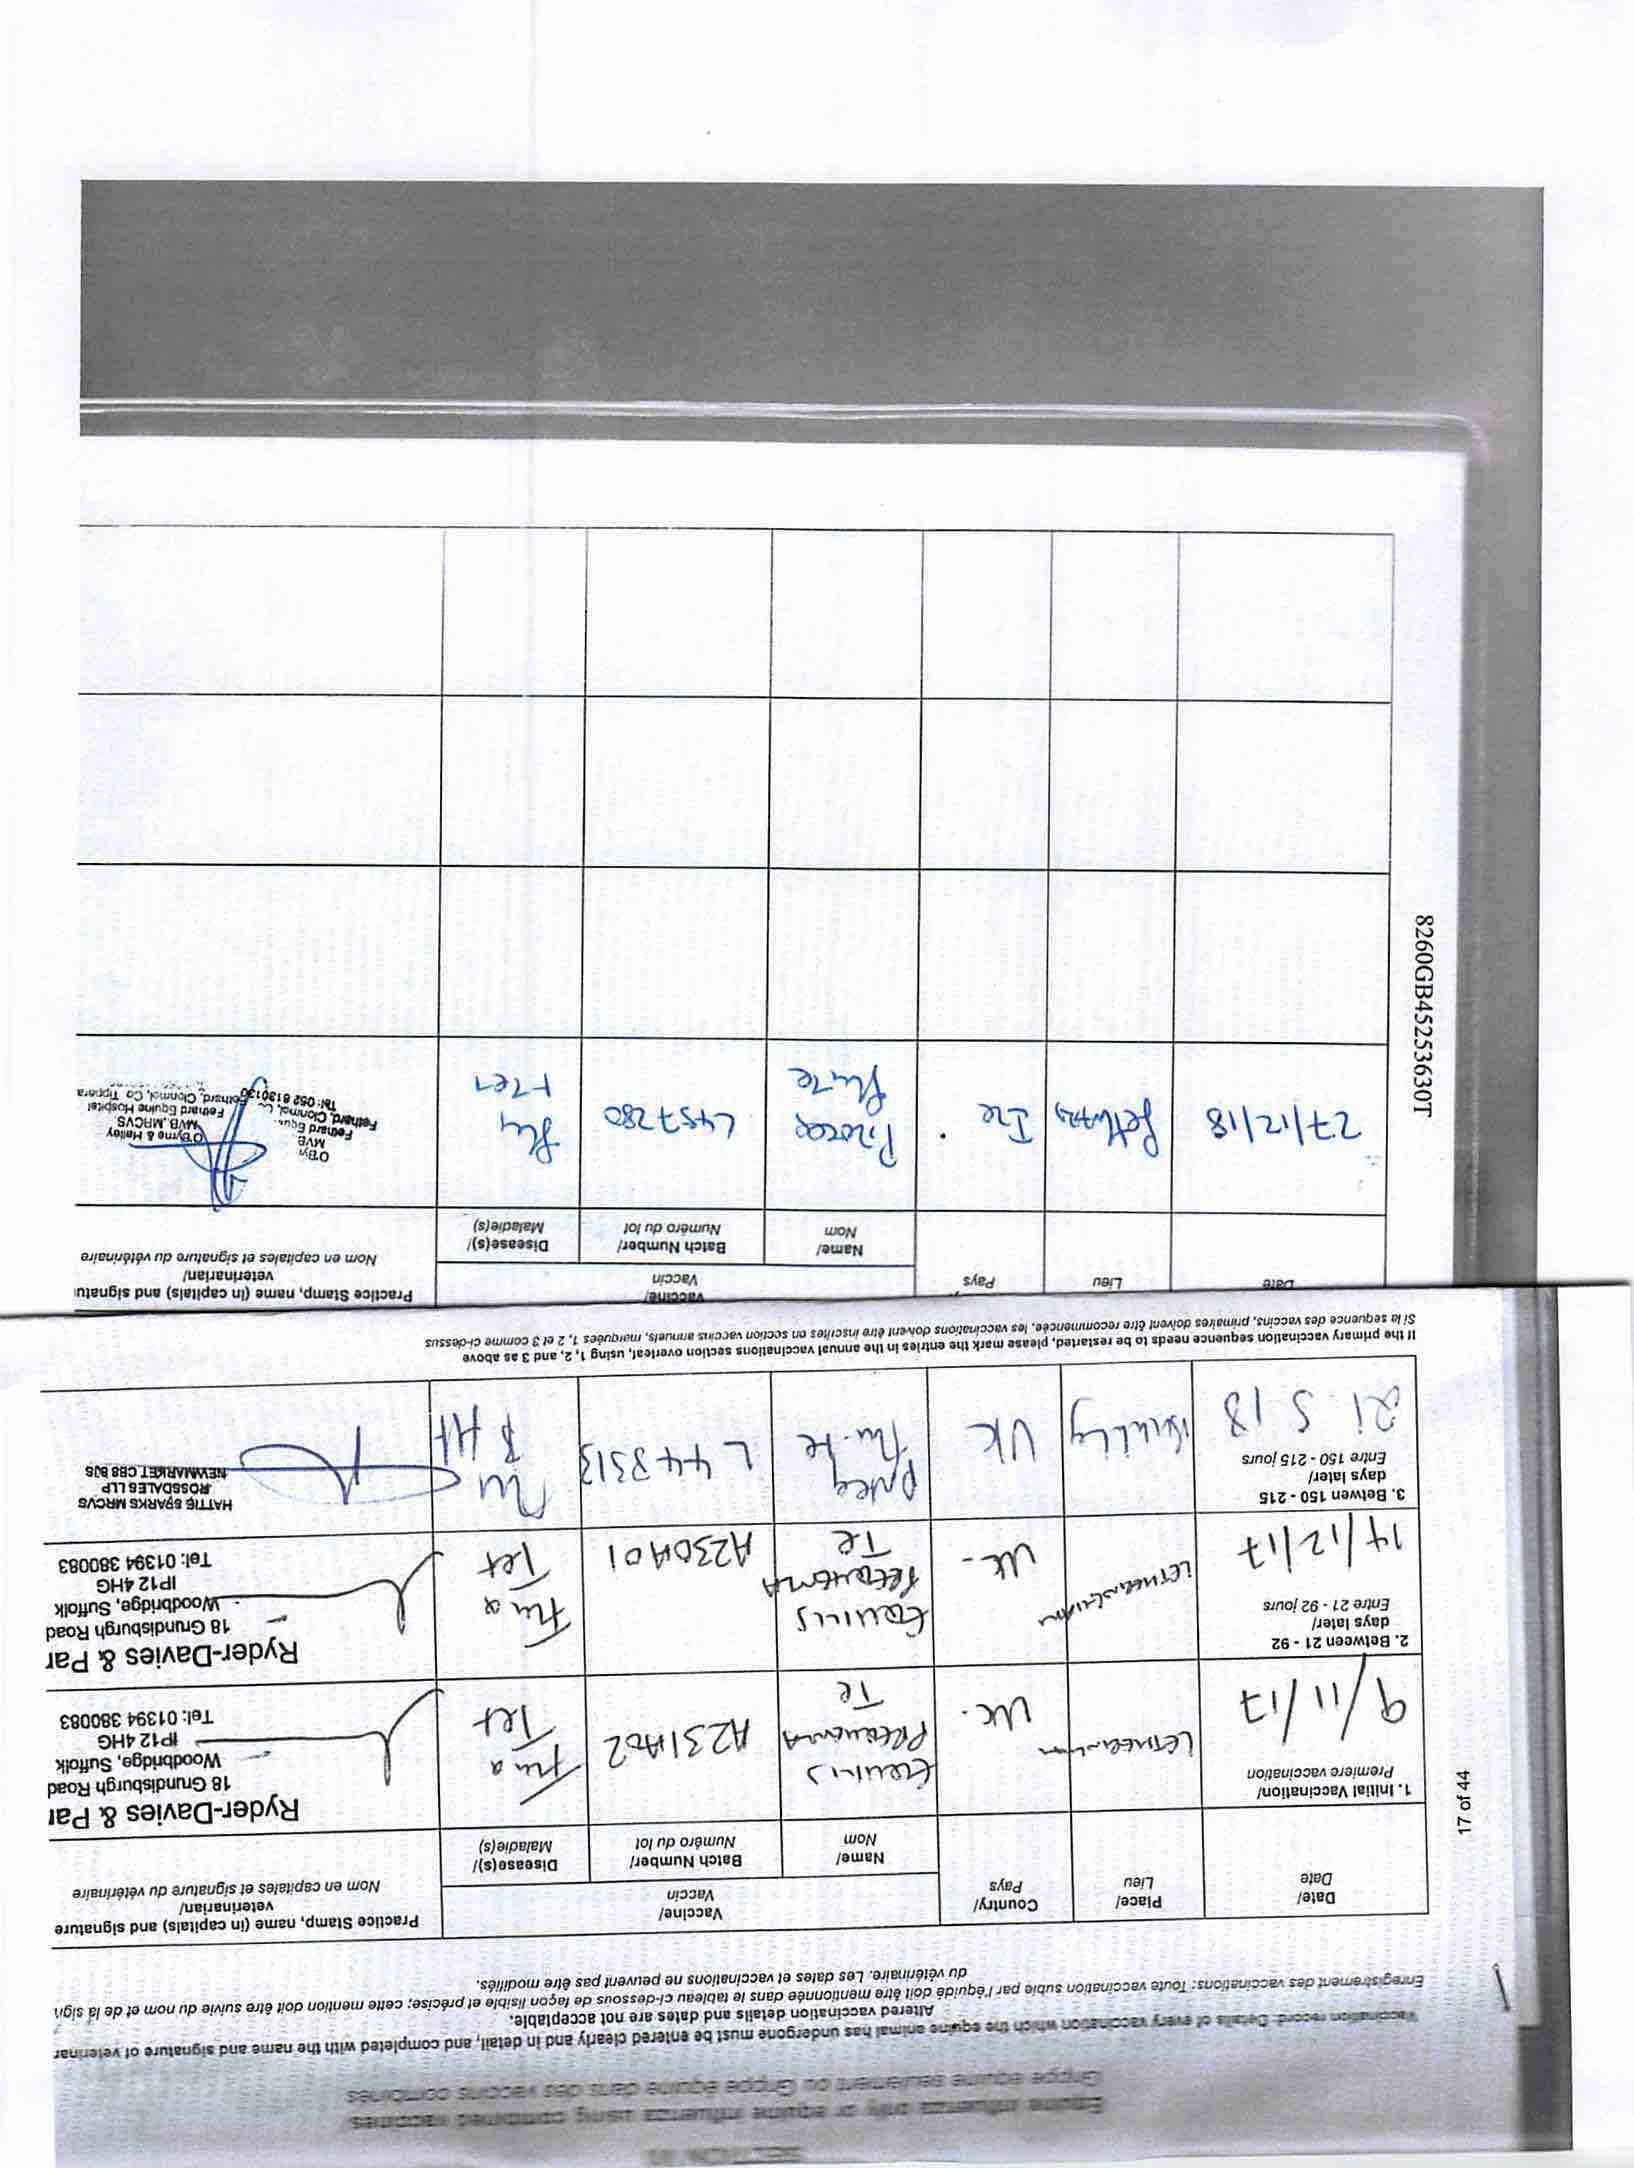 Equine influenza only or equine influenza using combined vaccines
Grippe equine seulement ou Grippe equine dans des vaccins combinés
Vaccination record: Details of every vaccination which the equine animal has undergone must be entered clearly and in detail, and completed with the name and signature of veterinar
Altered vaccination details and dates are not acceptable.
Enregistrement des vaccinations: Toute vaccination subie par l'équidé doit être mentionnée dans le tableau ci-dessous de façon lisible et précise; cette mention doit être suivie du nom et de la sign
du vétérinaire. Les dates et vaccinations ne peuvent pas être modifiées.
Date/
Date
Place/
Lieu
Country/
Pays
Vaccine/
Vaccin
Name/
Nom
Batch Number/
Numéro du lot
Disease(s)/
Maladie(s)
Practice Stamp, name (in capitals) and signature
veterinarian/
Nom en capitales et signature du vétérinaire
1. Initial Vaccination/
Premiere vaccination
9/11/17
UK.
EQUILIS
PREQUENZA
Te
A231A02
Flu &
Tet
Ryder-Davies & Par
18 Grundisburgh Road
Woodbridge, Suffolk
IP12 4HG
Tel: 01394 380083
2. Between 21 - 92
days later/
Entre 21 - 92 jours
14/12/17
UK.
EQUILIS
PREQUENZA
Te
A230A01
Flu &
Tet
Ryder-Davies & Par
18 Grundisburgh Road
Woodbridge, Suffolk
IP12 4HG
Tel: 01394 380083
3. Betwen 150 - 215
days later/
Entre 150 - 215 jours
21 5 18
UK
Proteq
Flu-te
L448313
Flu
HATTIE SPARKS MRCVS
ROSSDALES LLP
NEWMARKET CB8 8JS
If the primary vaccination sequence needs to be restarted, please mark the entries in the annual vaccinations section overleaf, using 1, 2, and 3 as above
Si la sequence des vaccins, primaires doivent être recommencée, les vaccinations doivent être inscrites en section vaccins annuels, marquées 1, 2 et 3 comme ci-dessus
17 of 44
Date
Lieu
Pays
Vaccine/
Vaccin
Name/
Nom
Batch Number/
Numéro du lot
Disease(s)/
Maladie(s)
Practice Stamp, name (in capitals) and signatu
veterinarian/
Nom en capitales et signature du vétérinaire
27/12/18
Fethard
Ire
Proteq
Flute
L457280
Flu
+Tet
O'Byrne & Halley
MVB, MRCVS
Fethard Equine Hospital
Fethard, Clonmel, Co Tippera
Tel: 052 6130130
8260GB45253630T